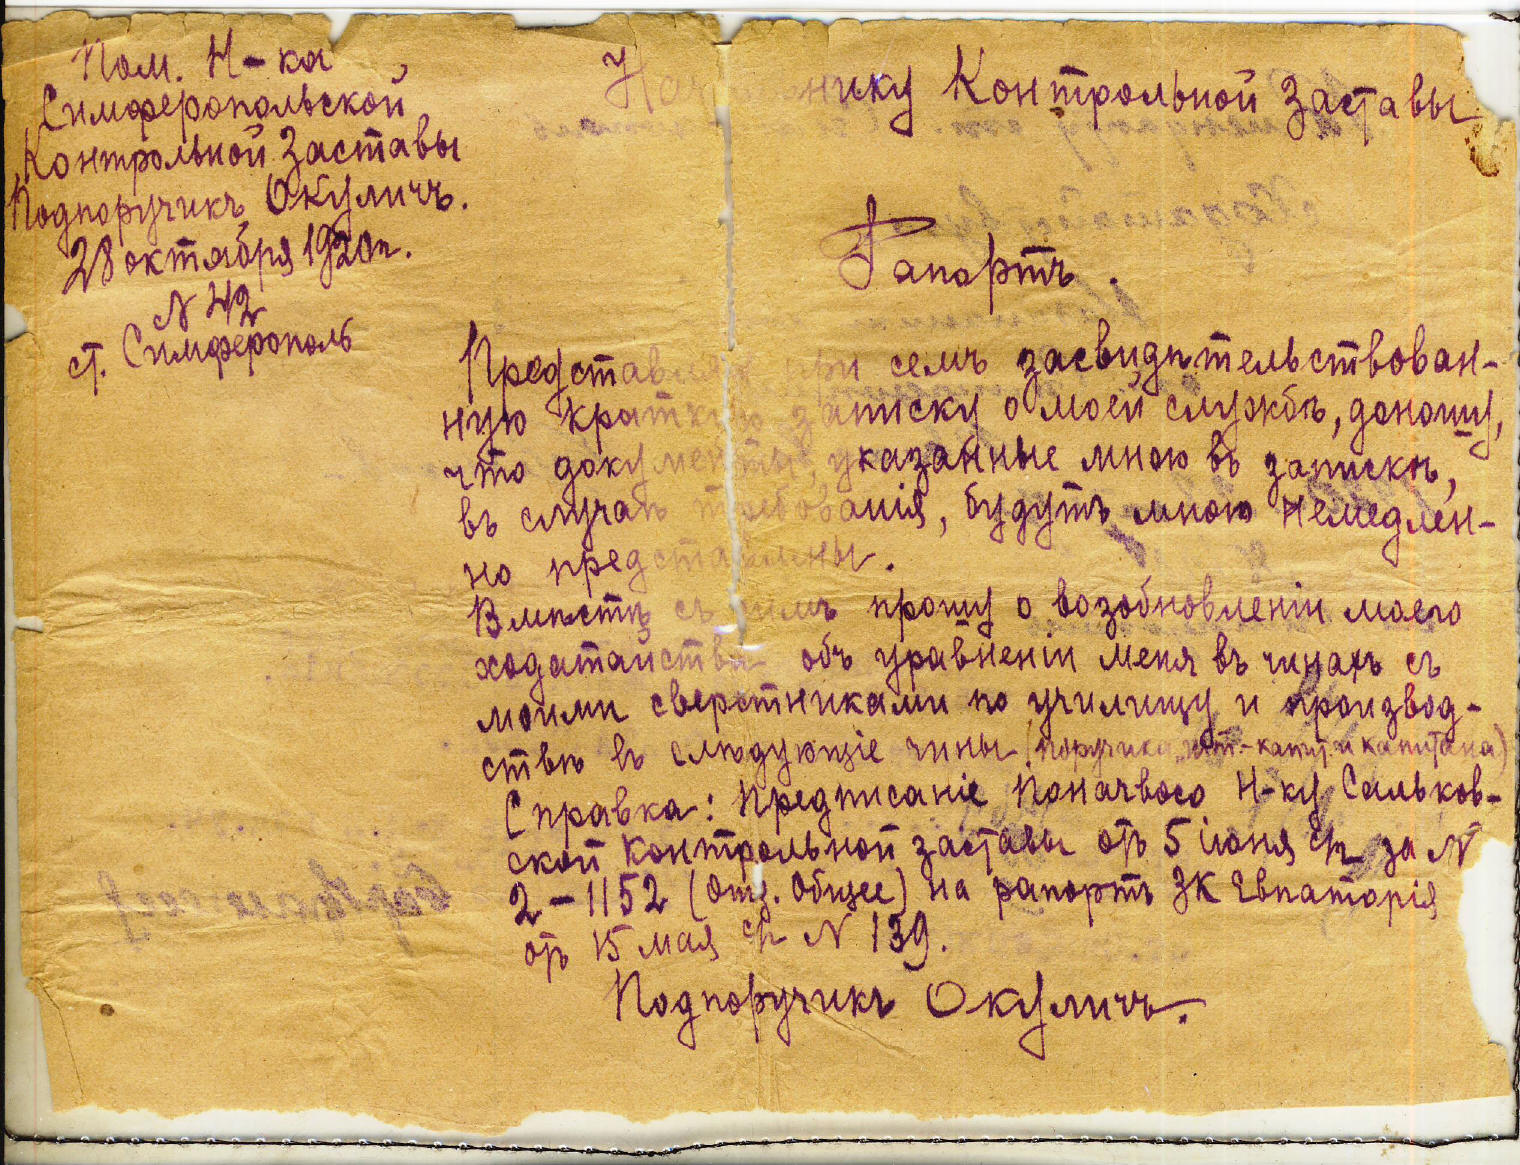 Пом. Н-ка
Симферопольской
Контрольной Заставы
Подпоручикъ Окуличъ.
28 октября 1920 г.
N 42
ст. Симферополь
Начальнику Контрольной Заставы
Рапортъ.
Представляя при семъ засвидѣтельствован-
ную краткую записку о моей службѣ, доношу,
что документы, указанные мною въ запискѣ,
въ случаѣ требованія, будутъ мною немедлен-
но представлены.
Вмѣстѣ съ симъ прошу о возобновленіи моего
ходатайства объ уравненіи меня въ чинахъ съ
моими сверстниками по училищу и производ-
ствѣ въ слѣдующіе чины (поручика, шт.-капит. и капитана)
Справка: Предписаніе Поначвосо Н-ку Сальков-
ской контрольной заставы отъ 5 іюня с/г за N
2-1152 (Отд. Общее) на рапортъ ЗК Евпаторія
отъ 15 мая с/г N 139.
Подпоручикъ Окуличъ.